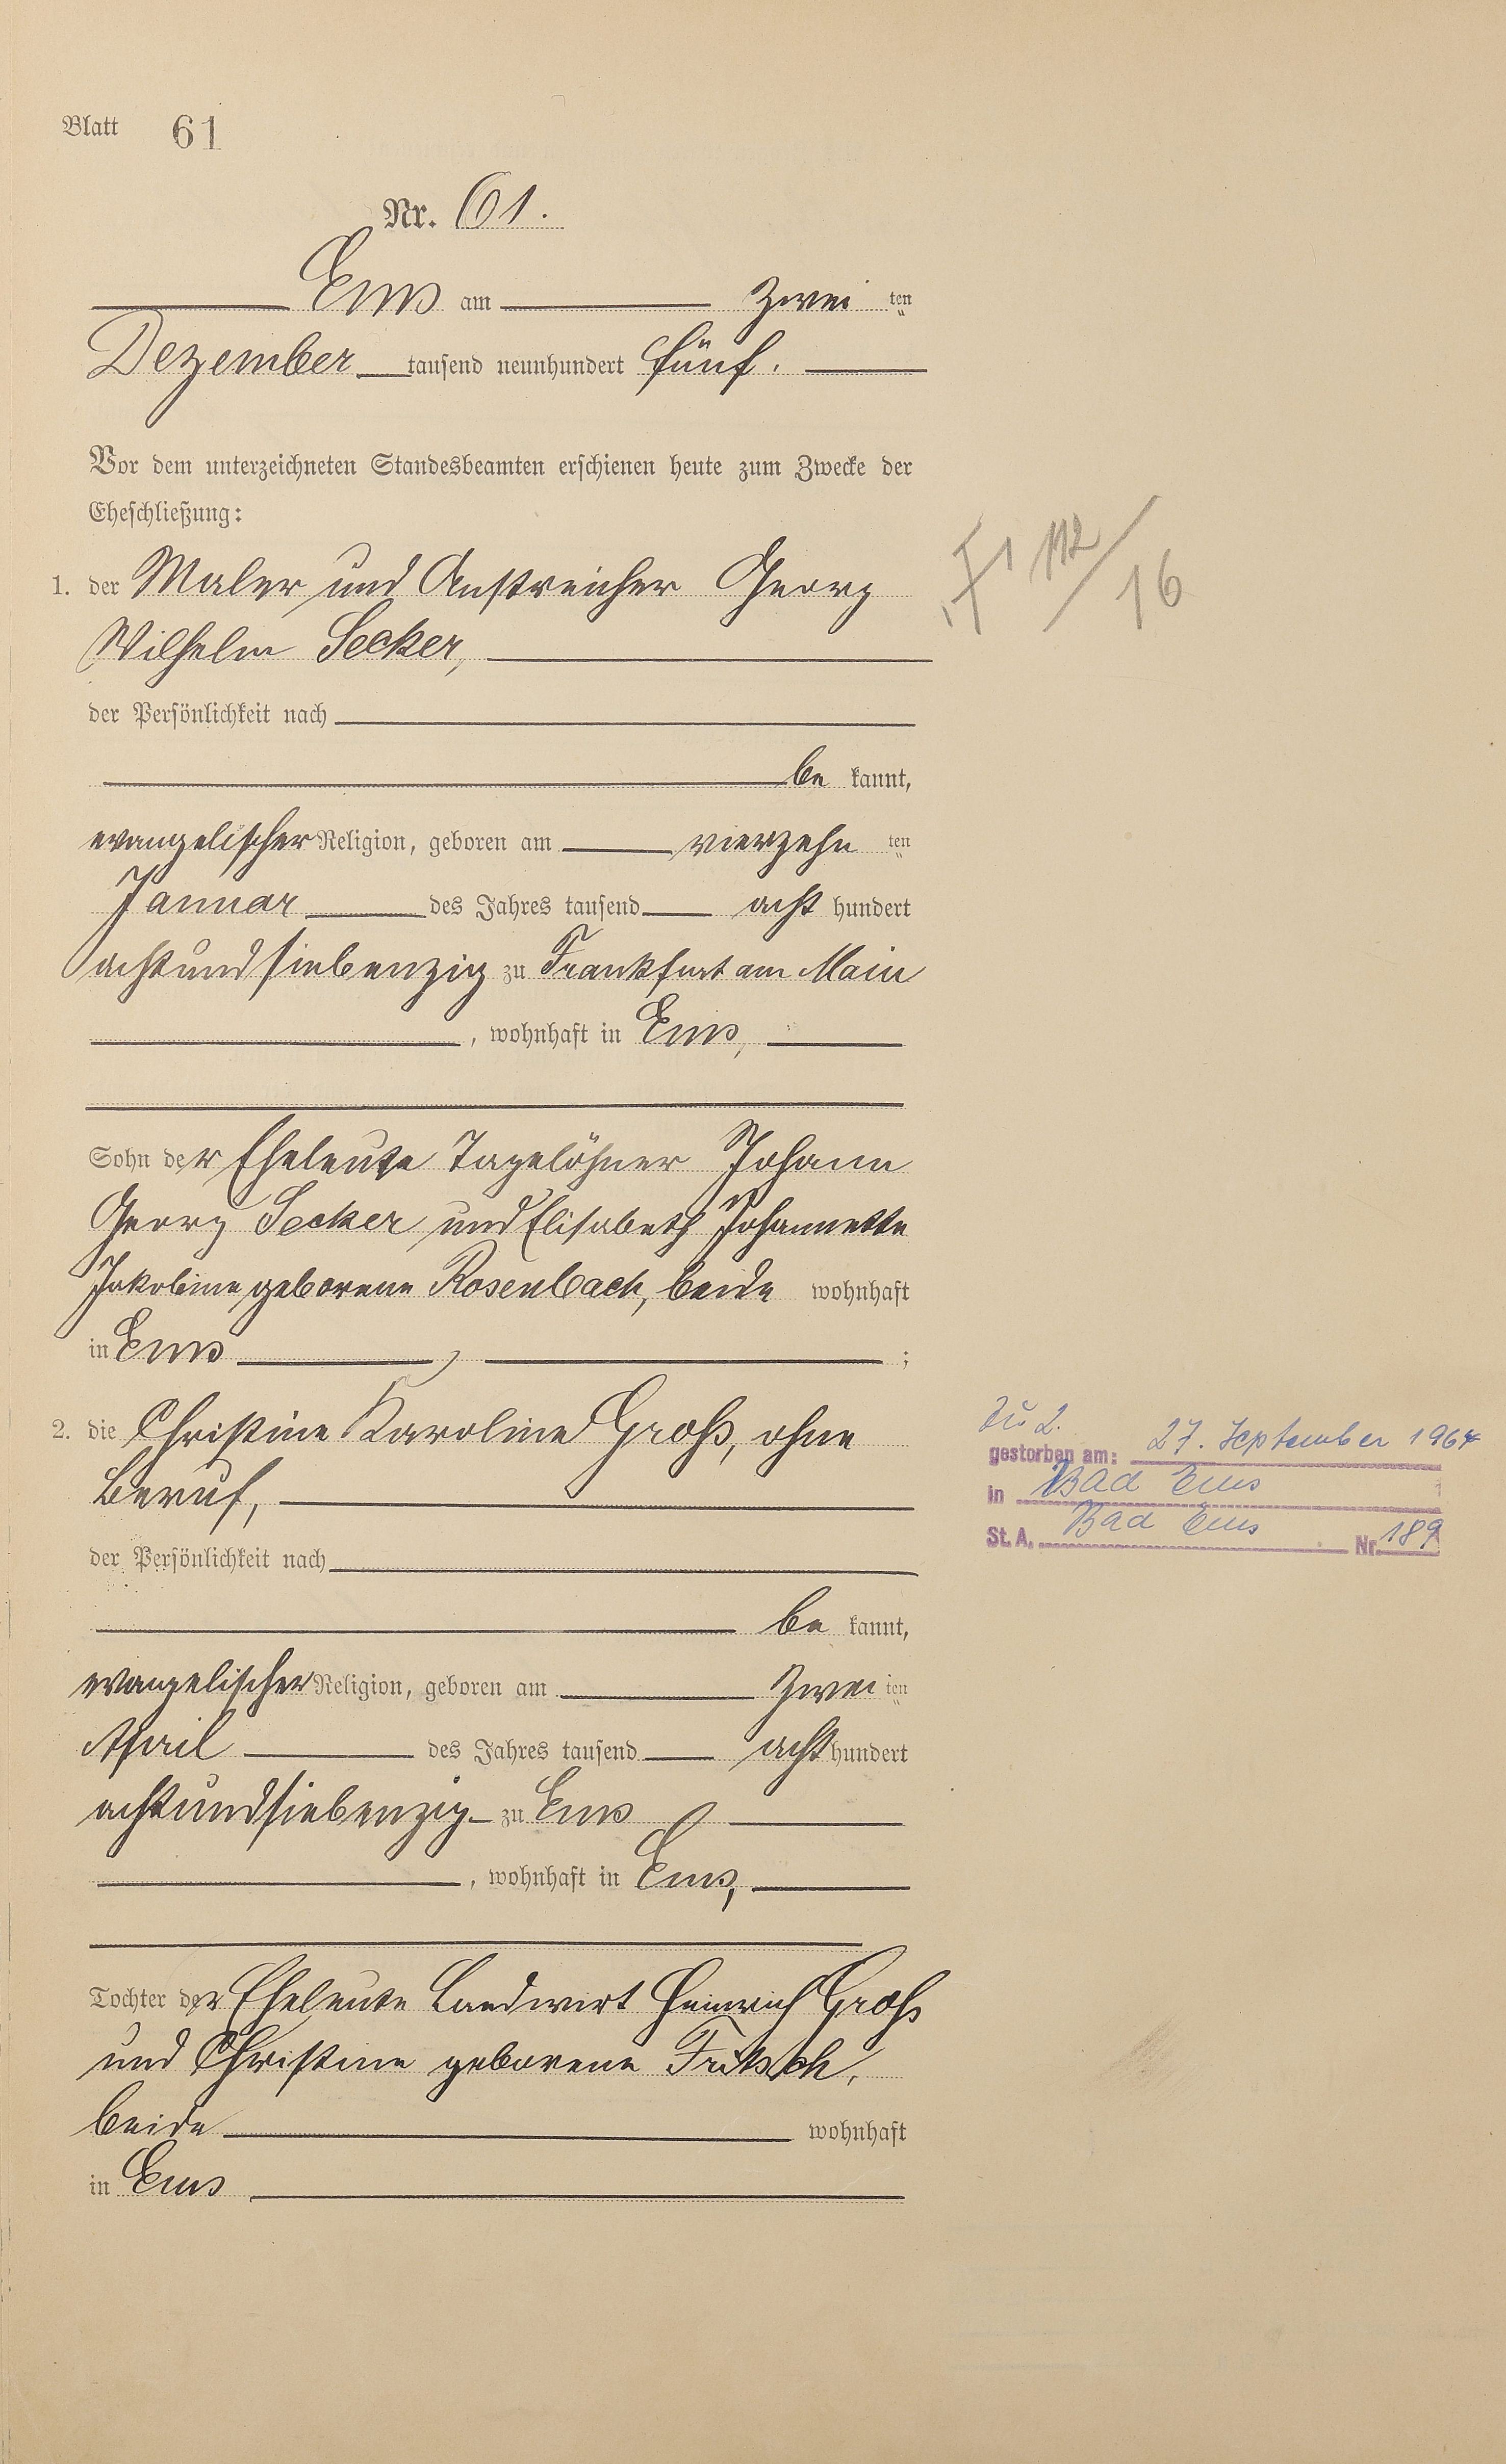 Blatt 61
Nr. 61.
Ems am zwei ten
Dezember tausend neunhundert fünf.
Vor dem unterzeichneten Standesbeamten erschienen heute zum Zwecke der
Eheschließung:
1. der Maler und Anstreicher Georg
Wilhelm Secker,
der Persönlichkeit nach
be kannt,
evangelischer Religion, geboren am vierzehn ten
Januar des Jahres tausend acht hundert
achtundsiebenzig zu Frankfurt am Main
, wohnhaft in Ems,
Sohn der Eheleute Tagelöhner Johann
Georg Secker und Elisabeth Johannette
Jakobine geborene Rosenbach, beide wohnhaft
in Ems , ;
2. die Christine Karoline Groß, ohne
Beruf,
der Persönlichkeit nach
be kannt,
evangelischer Religion, geboren am zwei ten
April des Jahres tausend acht hundert
achtundsiebenzig zu Ems
, wohnhaft in Ems,
Tochter der Eheleute Landwirt Heinrich Groß
und Christine geborene Fritsch,
beide wohnhaft
in Ems
1 112/16
Zu 2.
gestorben am: 27. September 1964
in Bad Ems
St. A. Bad Ems Nr. 189